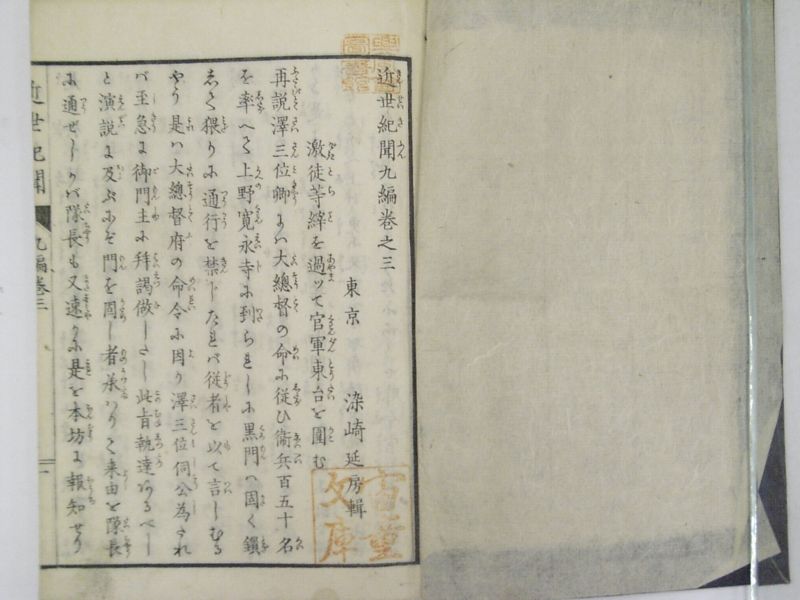 近世紀聞九編巻之三
東京 染崎延房輯
激徒等繹を過ッて官軍東台を圍む
再説澤三位卿にハ大總督の命に従ひ衛兵百五十名
を率へて上野寛永寺に到られしに黒門ハ固く鎖
して猥りに通行を禁じたれバ従者を以て言しむる
やう是ハ大總督府の命令に因り澤三位伺公為され
バ至急に御門主に拜謁做したし此旨執達あるべし
と演説に及ぶにぞ門を固し者承ハりて来由を隊長
に通ぜしかバ隊長も又速かに是を本坊に報知せり
近世紀聞 九編巻三 一